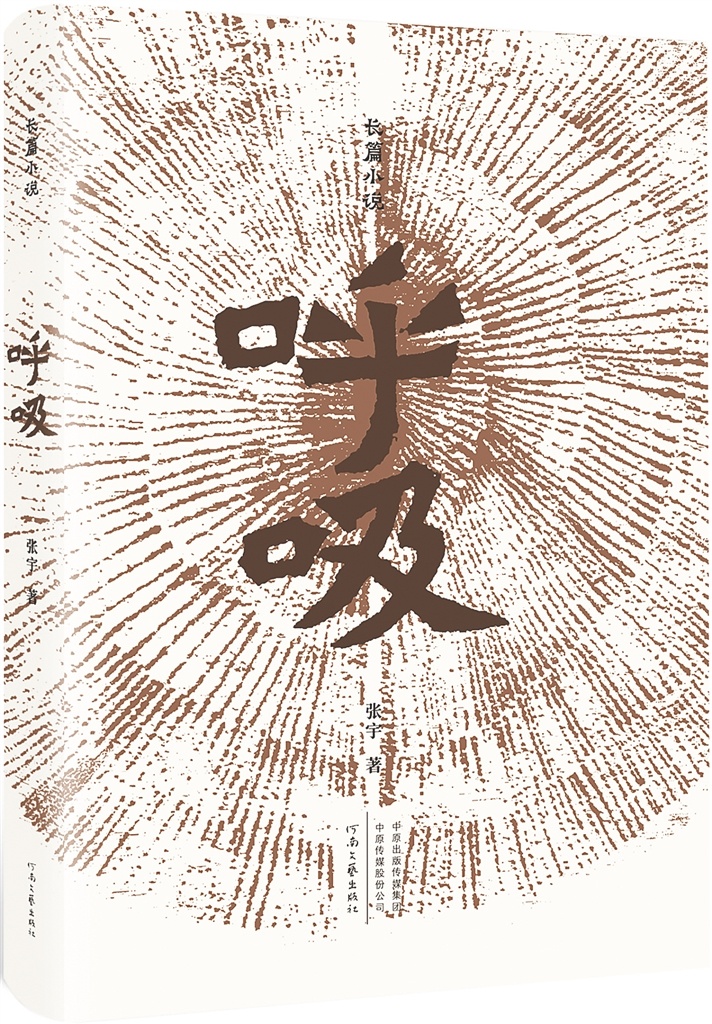 长篇小说
呼吸
张宇 著
河南文艺出版社
长篇小说
呼吸
张宇 著
中原出版传媒集团
中原传媒股份公司
河南文艺出版社